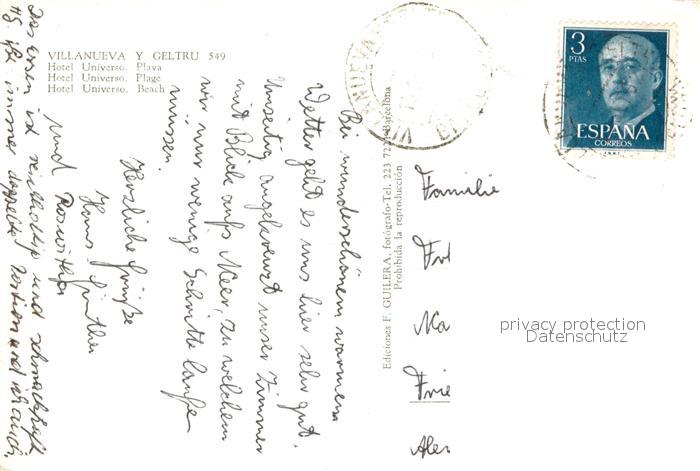 VILLANUEVA Y GELTRU 549
Hotel Universo. Playa
Hotel Universo. Plage
Hotel Universo. Beach
Bei wunderschönem warmem
Wetter geht es uns hier sehr gut.
unser Zimmer
mit Blick aufs Meer, zu welchem
wir nur wenige Schritte laufen
müssen.
Herzliche Grüße
Hans Günther
und Roswitha
Das Essen ist reichhaltig und schmackhaft
immer doppelte Portion und
Ediciones F. GUILERA, fotógrafo-Tel. 223 722 Barcelona
Prohibida la reproducción
3
PTAS
ESPAÑA
CORREOS
VILLANUEVA
Familie
Frie
privacy protection
Datenschutz